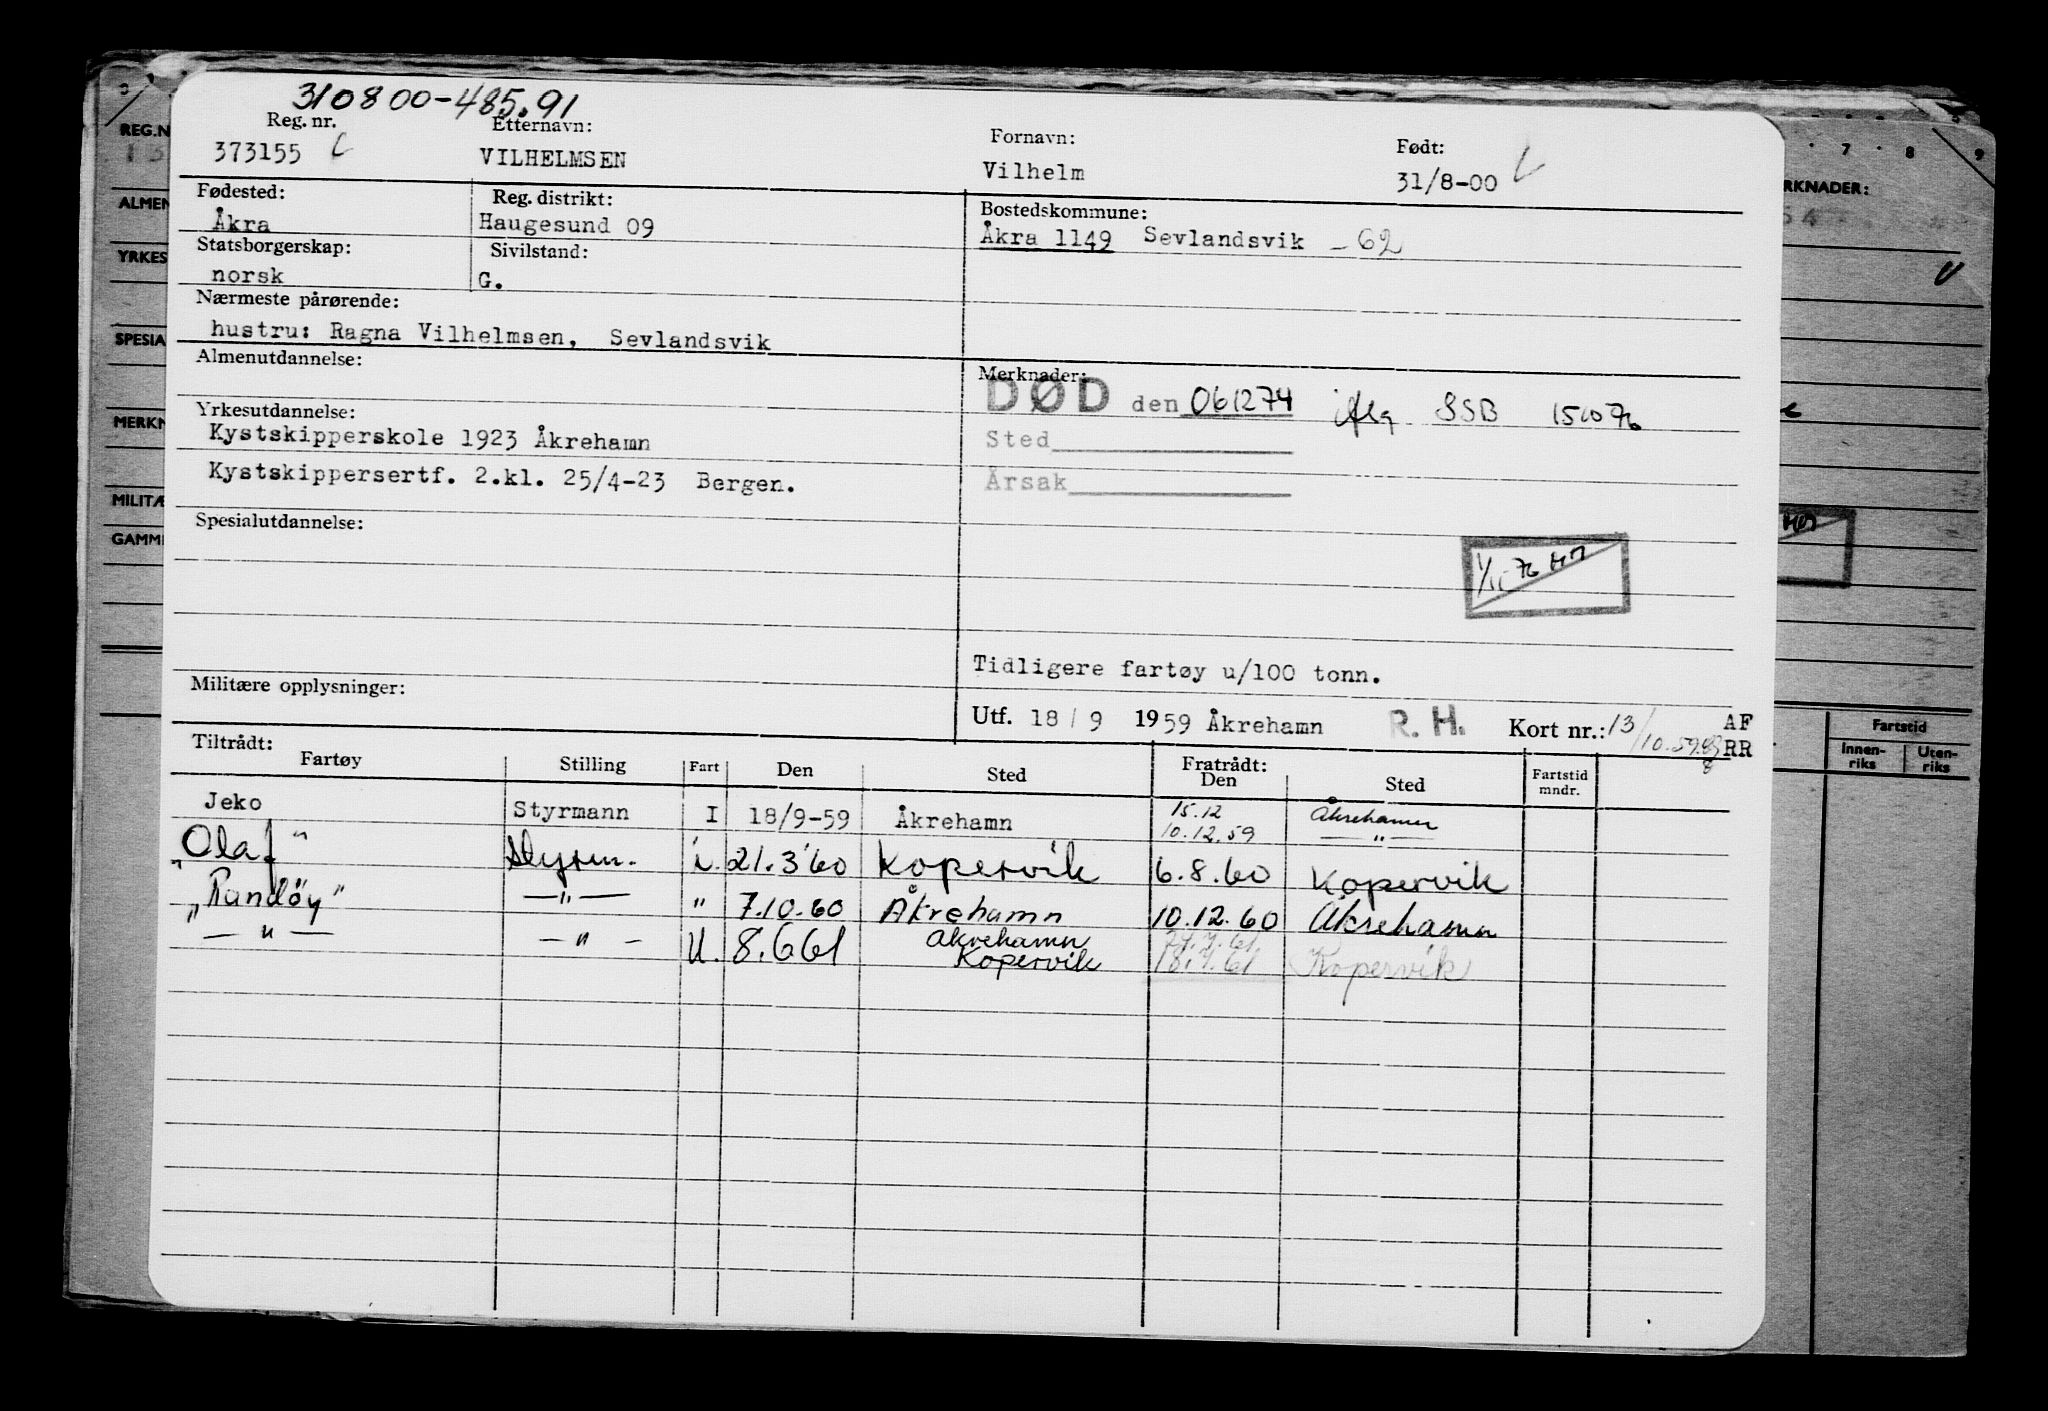 310800-485.91
Reg. nr. Etternavn: Fornavn: Født:
373155 VILHELMSEN Vilhelm 31/8-00
Fødested: Reg. distrikt: Bostedskommune:
Åkra Haugesund 09 Åkra 1149 Sevlandsvik -62
Statsborgerskap: Sivilstand:
norsk G.
Nærmeste pårørende:
hustru: Ragna Vilhelmsen, Sevlandsvik
Almenutdannelse: Merknader:
DØD den 061274 iflg SSB 151076
Yrkesutdannelse:
Kystskipperskole 1923 Åkrehamn Sted
Kystskippersertf. 2.kl. 25/4-23 Bergen. Årsak
Spesialutdannelse:
Tidligere fartøy u/100 tonn.
Militære opplysninger:
Utf. 18/9 1959 Åkrehamn R.H. Kort nr.: 13/10.59 AF
RR
Tiltrådt: Fratrådt:
Fartøy Stilling Fart Den Sted Den Sted Fartstid mndr.
Jeko Styrmann I 18/9-59 Åkrehamn 15.12 Åkrehamn
10.12.59 —"—
"Olaf" Styrm. i. 21.3'60 Kopervik 6.8.60 Kopervik
"Randöy" —"— " 7.10.60 Åkrehamn 10.12.60 Åkrehamn
—"— —"— U. 8.6 61 Åkrehamn
Kopervik 18.7.61 Kopervik
REG.N
ALMEN
YRKES
SPESIA
MERKN
MILITÆ
GAMM
7 8 9
RKNADER:
Fartstid
Innenriks Utenriks